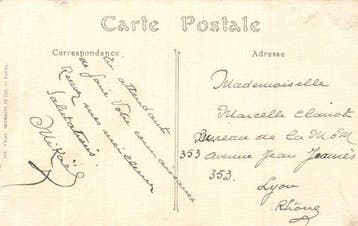 Carte Postale
Correspondance
Adresse
En attendant
de faire Votre connaissance
Recevez mes meilleures
Salutations
Mikaël
Mademoiselle
Marcelle
Bureau de la
353 Avenue Jean Jaurès
353.
Lyon
Rhône